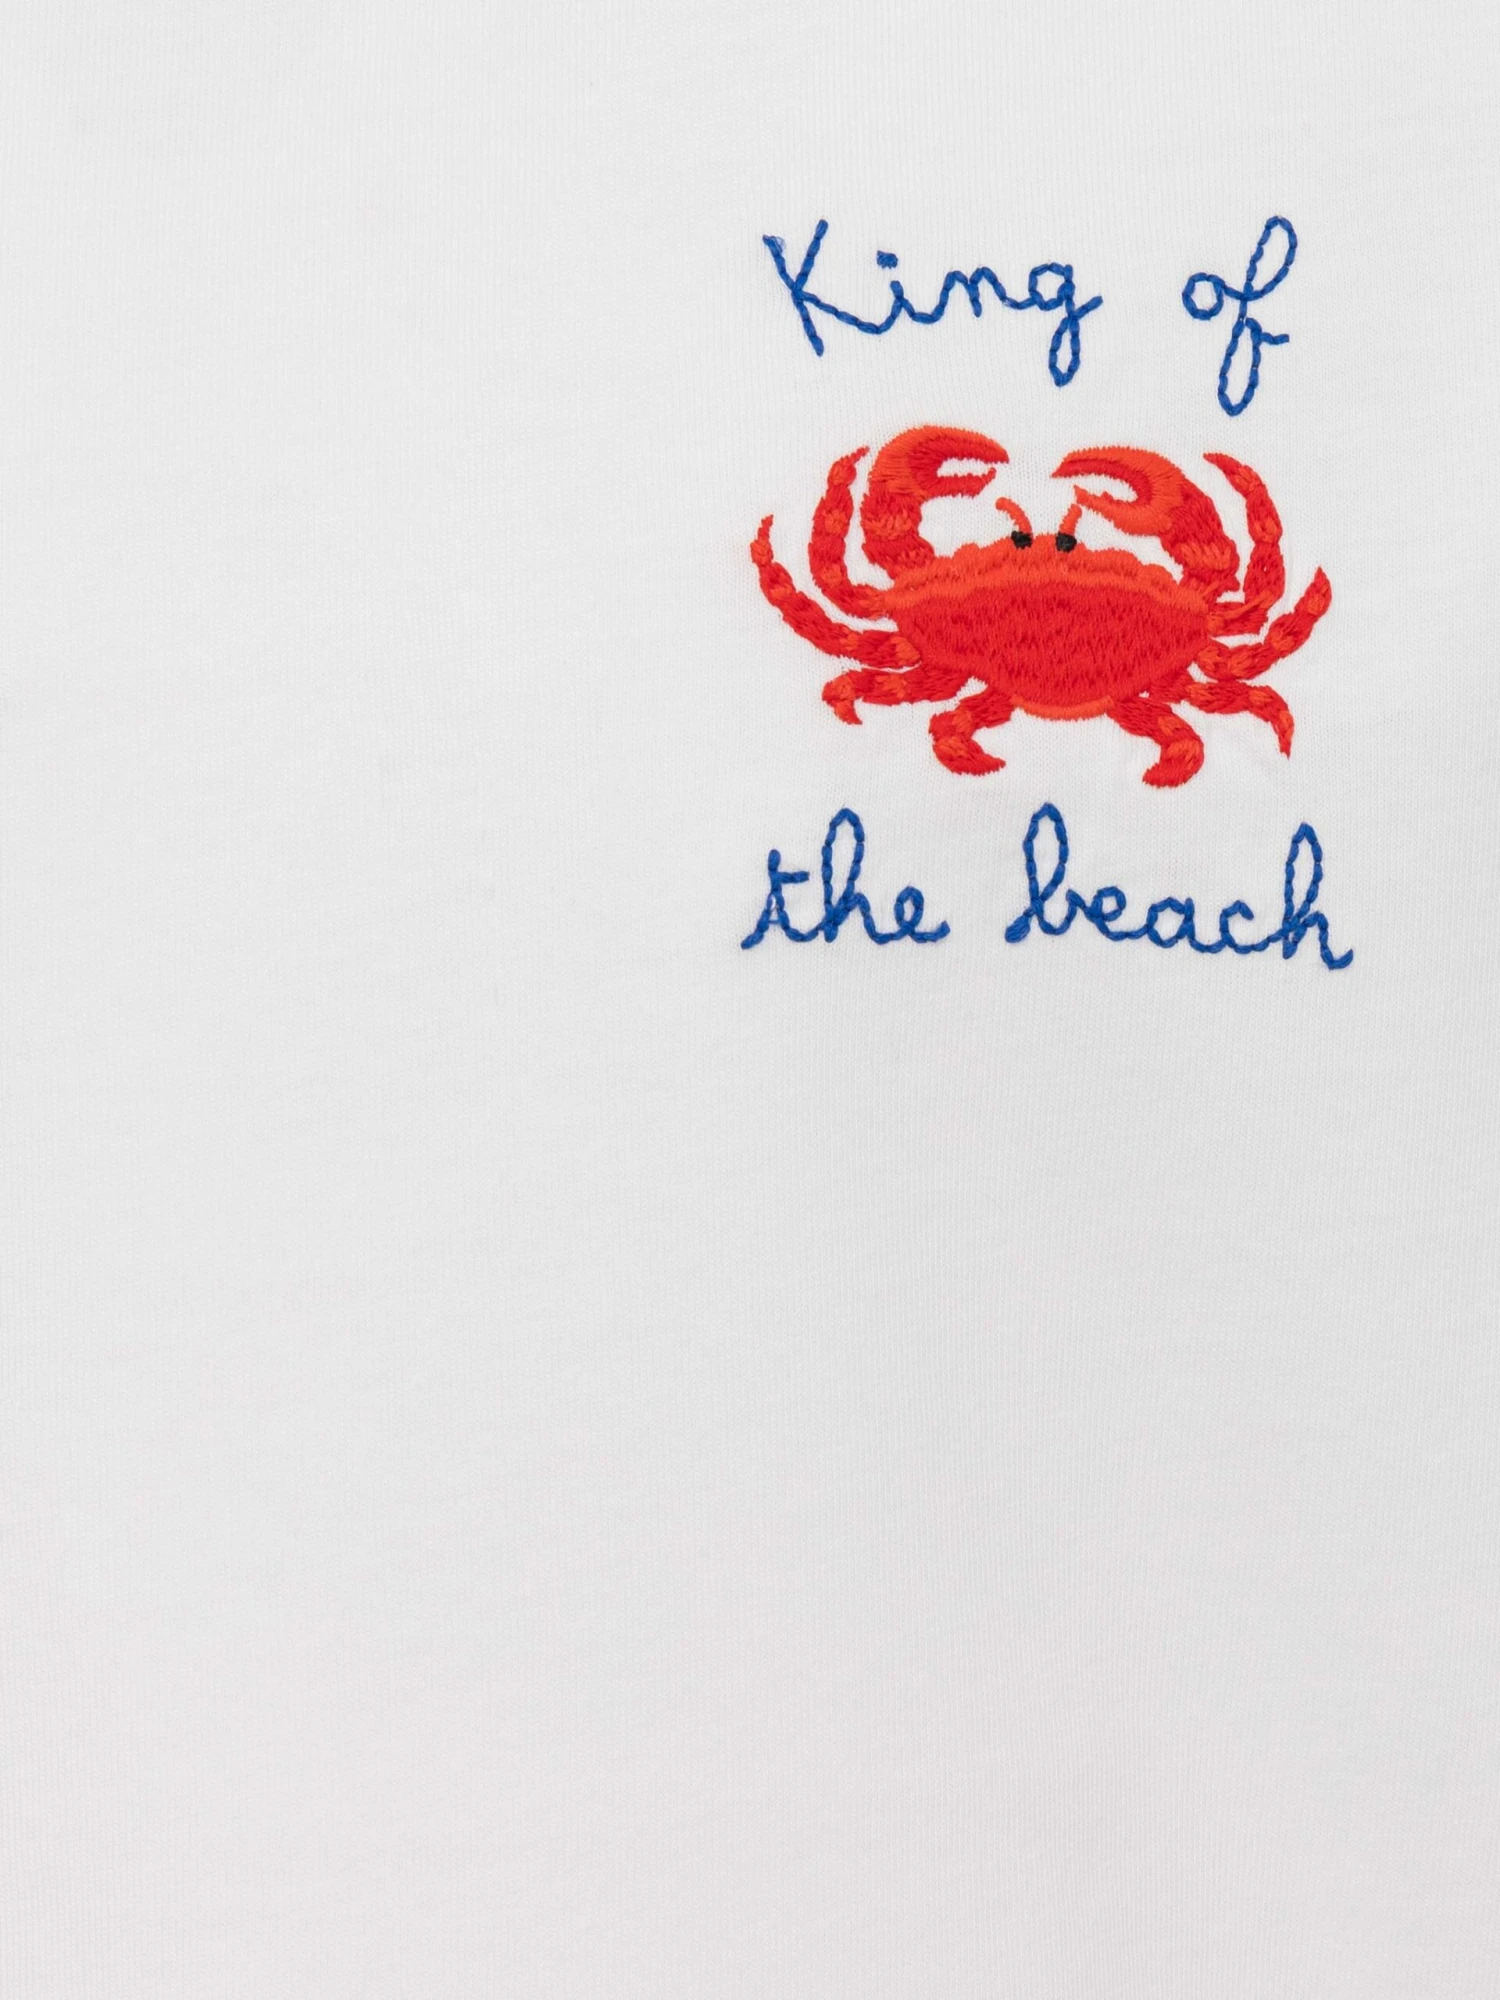 King of
the beach